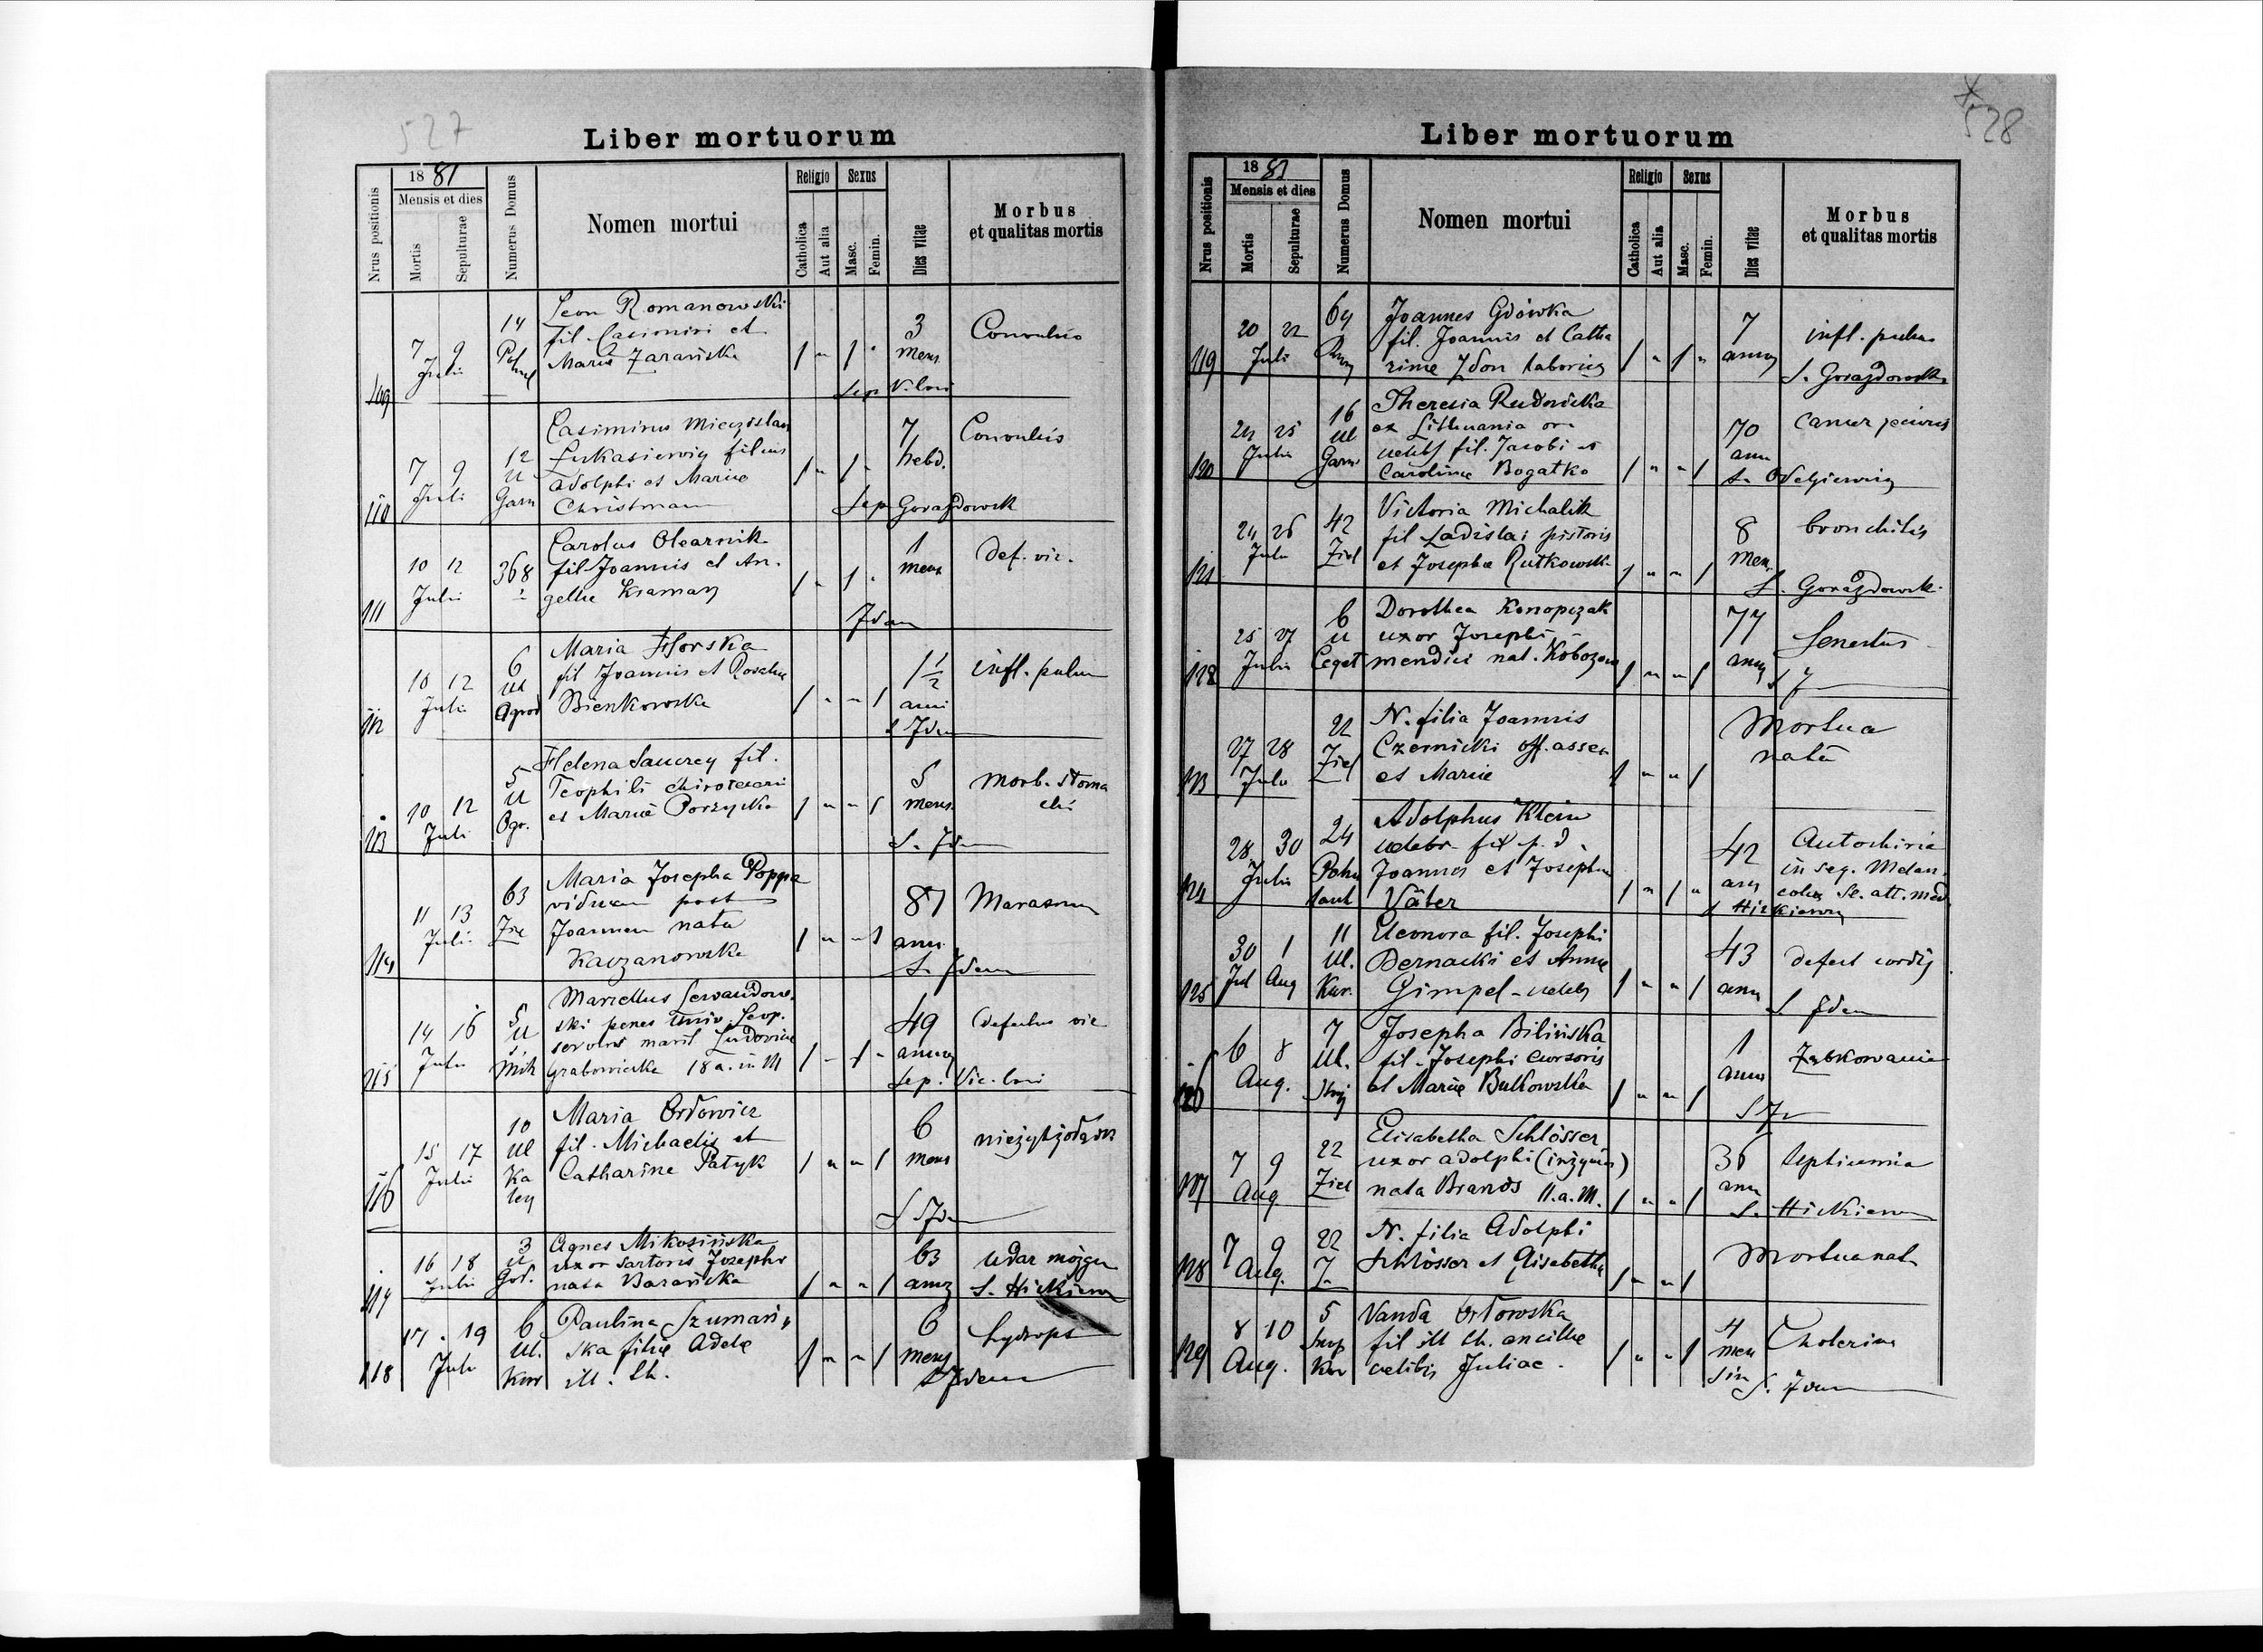 527
Liber mortuorum
Nrus positionis
1881
Mensis et dies
Mortis
Sepulturae
Numerus Domus
Nomen mortui
Religio
Catholica
Aut alia
Sexus
Masc.
Femin.
Dies vitae
Morbus
et qualitas mortis
109
7 9
Juli
14
Leon Romanowski
fil. Casimiri et
Mariæ Zarańska
3
mens.
Convulsio
110
7 9
Juli
12
Ul
Garn
Casimirus Mieczislaus
Łukasiewicz filius
Adolphi et Mariæ
Christmann
7
hebd.
Convulsio
Sep Gorazdowsk
111
10 12
Julii
368
Carolus Olearnik
fil. Joannis et An.
gelæ Kramarz
1
mens
Def. vir.
Idem
112
10 12
Juli
6
ul
Ogrod
Maria Sikorska
fil Joannis et Rosaliæ
Bienkowska
1 1/2
anni
infl. pulm
S Idem
113
10 12
Juli
5
ul
Ogr.
Helena Saucrey fil.
Teophili chirotecarii
et Mariæ Porzycka
5
mens.
morb. stoma
chi
S. Idem
114
11 13
Julii
63
Zie
Maria Josepha Poppa
vidua post
Joannem nata
Kaczanowska
87
ann.
Marasmus
S. Idem
115
14 16
Julii
5
ul
Mik
Marcellus Serwandow.
ski penes Univ. Leop.
servolus marit Ludovicæ
Grabowiecka 18 a. in M
49
annor
defectus vir
Sep.
116
15 17
Julii
10
ul
Ka
lecz
Maria Ordowicz
fil. Michaelis et
Catharinæ Patyk
6
mens
nieżyt żołądk
S Idem
117
16 18
Julii
3
ul
God.
Agnes Mikosińska
uxor sartoris Josephi
nata Barańska
63
annor
udar mózgu
S. Hickiew
118
17 19
Juli
6
Ul.
Kur
Paulina Szumań,
ska filia Adelæ
ill. th.
6
mens
hydrops
S Idem
528
Liber mortuorum
Nrus positionis
1881
Mensis et dies
Mortis
Sepulturae
Numerus Domus
Nomen mortui
Religio
Catholica
Aut alia
Sexus
Masc.
Femin.
Dies vitae
Morbus
et qualitas mortis
119
20 22
Juli
64
Joannes Gdówka
fil. Joannis et Catha
rinæ Zdon laboriis
7
annor
infl. pulm
S. Gorazdowsk
120
24 25
Julii
16
ul
Garn
Theresia Rudnicka
ex Lithuania
celebs fil. Jacobi et
Carolinæ Bogatko
70
ann
cancer
S. Odelgiewicz
121
24 26
Julii
42
Ziel
Victoria Michalik
fil Ladislai pistoris
et Josephæ Rutkowsk
8
Men.
bronchitis
S. Gorazdowsk.
122
25 27
Julii
6
ul
Ceget
Dorothea Konopczak
uxor Josephi
mendici nat.
77
ann
Senectus
123
27 28
Julii
22
Ziel
N. filia Joannis
Czernicki off. assec
et Mariæ
Mortua
nata
124
28 30
Julii
24
Adolphus Klein
celebs fil p. d.
Joannes et Josepha
Väter
42
ann
Autochiria
in seq. Melan.
colia Se. att. med
S Hickiewicz
125
30 1
Jul Aug
11
Ul.
Kur.
Eleonora fil. Josephi
Bernacki et Annæ
Gimpel - celebs
43
ann
defect cordis
S Idem
126
6 8
Aug.
7
Ul.
Josepha Bilińska
fil. Josephi cursoris
et Mariæ Bulkowska
1
annus
Ząbkowanie
127
7 9
Aug
22
Ziel
Elisabetha Schlösser
uxor Adolphi (inżynier)
nata Brands 11. a. M.
36
ann
septicemia
S. Hickiew
128
7 9
Aug.
22
Z
N. filia Adolphi
Schlösser et Elisabetha
Mortua nat.
129
8 10
Aug.
5
Kor
Vanda Orłowska
fil ill th. ancillæ
celibis Juliae.
4
men
sin
Cholerina
S. Idem